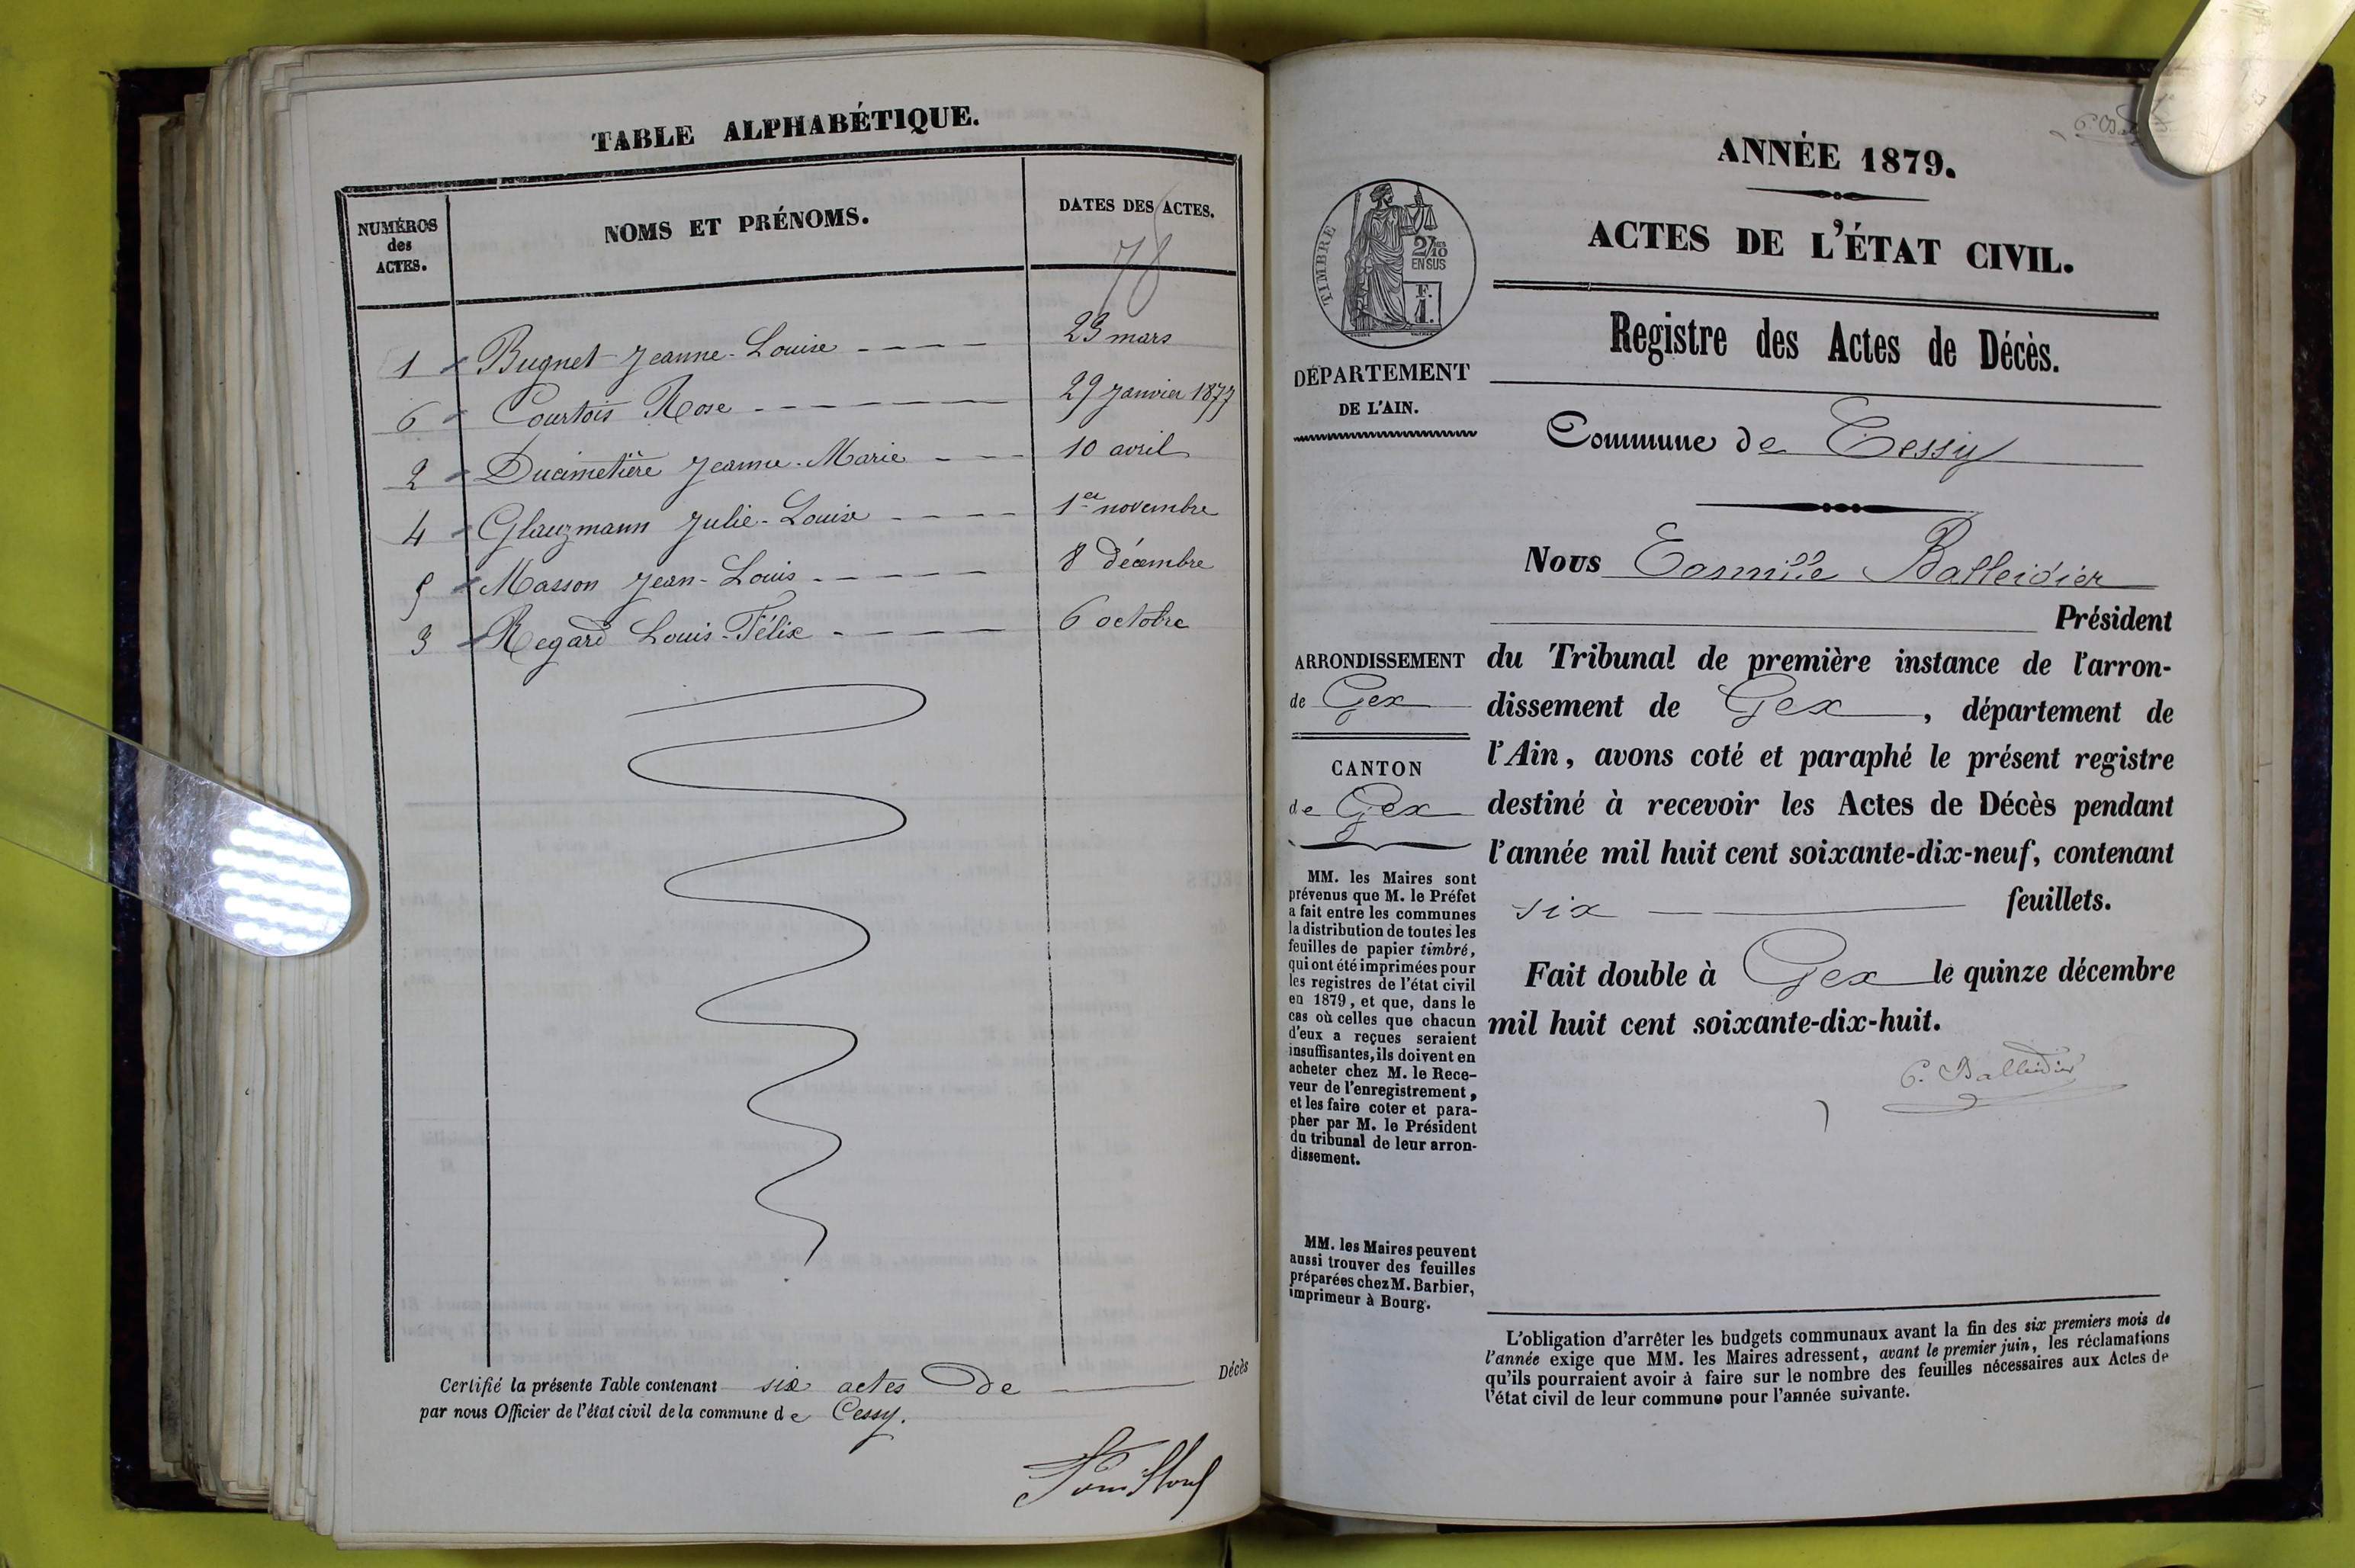 TABLE ALPHABÉTIQUE.
NUMÉROS des ACTES.
NOMS ET PRÉNOMS.
DATES DES ACTES.
78
1 Bugnet Jeanne-Louise 23 mars
6 Courtois Rose 29 Janvier 1877
2 Ducimetière Jeanne-Marie 10 avril
4 Glauzmann Julie-Louise 1er novembre
5 Masson Jean-Louis 8 décembre
3 Regard Louis-Félix 6 octobre
Certifié la présente Table contenant six actes de Décès
par nous Officier de l'état civil de la commune de Cessy.
ANNÉE 1879.
ACTES DE L'ÉTAT CIVIL.
TIMBRE
2/10 EN SUS
F. 1.
Registre des Actes de Décès.
DÉPARTEMENT
DE L'AIN.
Commune de Cessy
Nous Camille Balleidier
Président
du Tribunal de première instance de l'arron-
dissement de Gex, département de
l'Ain, avons coté et paraphé le présent registre
destiné à recevoir les Actes de Décès pendant
l'année mil huit cent soixante-dix-neuf, contenant
six feuillets.
Fait double à Gex le quinze décembre
mil huit cent soixante-dix-huit.
C. Balleidier
ARRONDISSEMENT
de Gex
CANTON
de Gex
MM. les Maires sont
prévenus que M. le Préfet
a fait entre les communes
la distribution de toutes les
feuilles de papier timbré,
qui ont été imprimées pour
les registres de l'état civil
en 1879, et que, dans le
cas où celles que chacun
d'eux a reçues seraient
insuffisantes, ils doivent en
acheter chez M. le Rece-
veur de l'enregistrement,
et les faire coter et para-
pher par M. le Président
du tribunal de leur arron-
dissement.
MM. les Maires peuvent
aussi trouver des feuilles
préparées chez M. Barbier,
imprimeur à Bourg.
L'obligation d'arrêter les budgets communaux avant la fin des six premiers mois de
l'année exige que MM. les Maires adressent, avant le premier juin, les réclamations
qu'ils pourraient avoir à faire sur le nombre des feuilles nécessaires aux Actes de
l'état civil de leur commune pour l'année suivante.